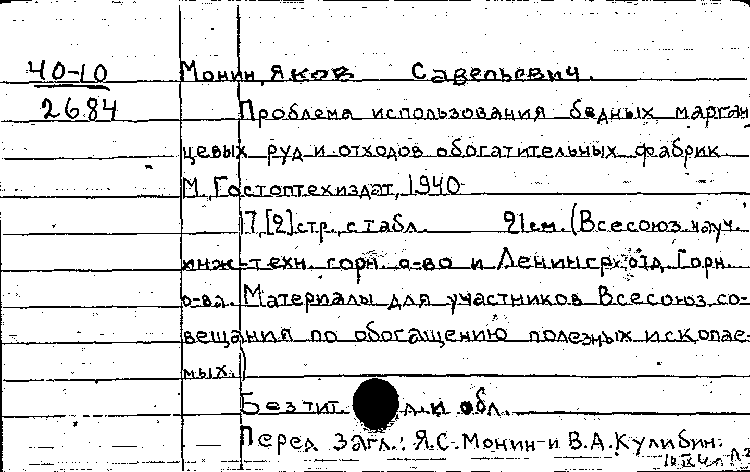 40-10 Монин, Яков Савельевич.
2684 Проблема использования бедных марган
цевых руд и отходов обогатительных фабрик
М., Гостоптехиздат, 1940
17, [2] стр. с табл. 21 см. (Всесоюз. науч.
инж.-техн. горн. о-во и Ленингр. отд. Горн.
о-ва. Материалы для участников Всесоюз. со-
вещания по обогащению полезных ископае-
мых.)
Без тит. л. и обл.
Перед загл.: Я.С. Монин и В.А. Кулибин.